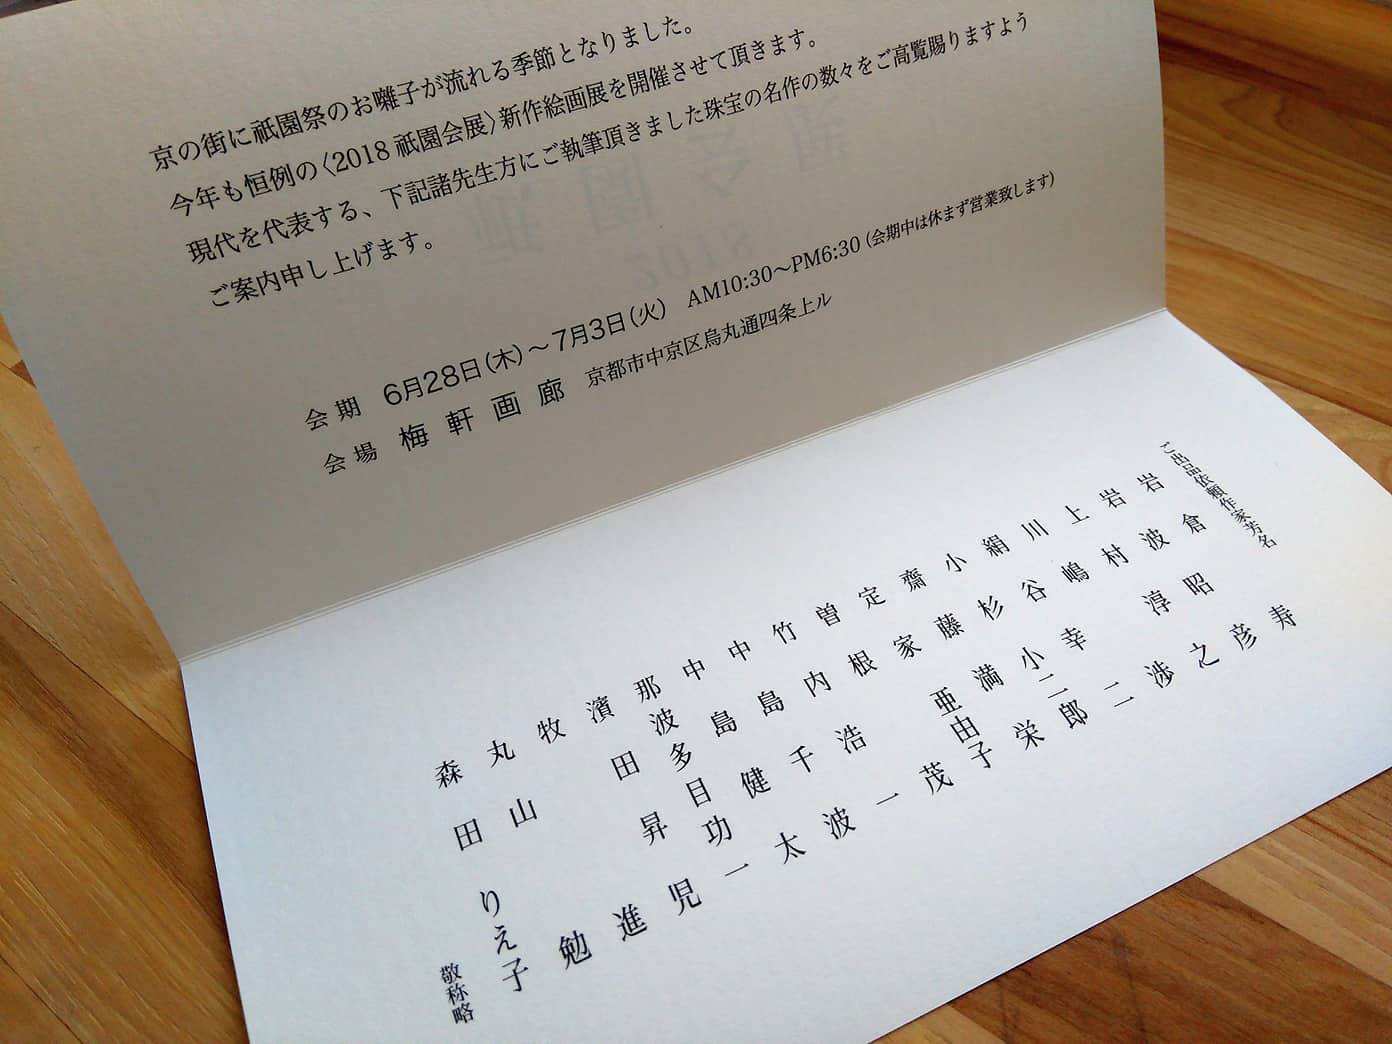 京の街に祇園祭のお囃子が流れる季節となりました。
今年も恒例の〈2018 祇園会展〉新作絵画展を開催させて頂きます。
現代を代表する、下記諸先生方にご執筆頂きました珠宝の名作の数々をご高覧賜りますよう
ご案内申し上げます。
会期 6月28日(木)～7月3日(火) AM10:30～PM6:30 (会期中は休まず営業致します)
会場 梅軒画廊 京都市中京区烏丸通四条上ル
ご出品依頼作家芳名
岩倉寿
岩波昭彦
上村淳之
川嶋渉
絹谷幸二
小杉小二郎
齋藤満栄
定家亜由子
曽根茂
竹内浩一
中島千波
中島健太
那波多目功一
濱田昇児
牧進
丸山勉
森田りえ子
敬称略